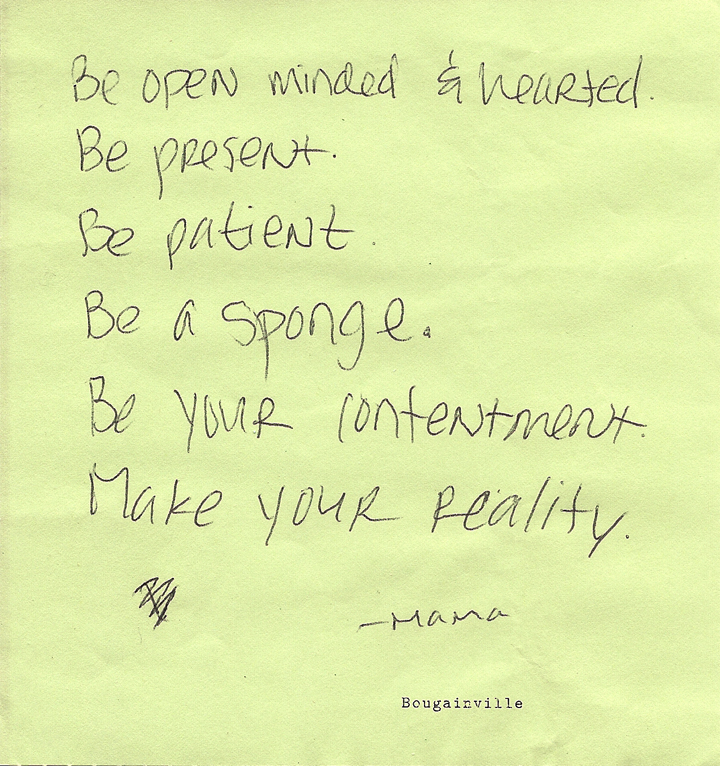 Be open minded & hearted.
Be present.
Be patient.
Be a sponge.
Be your contentment.
Make your reality.
-Mama
Bougainville